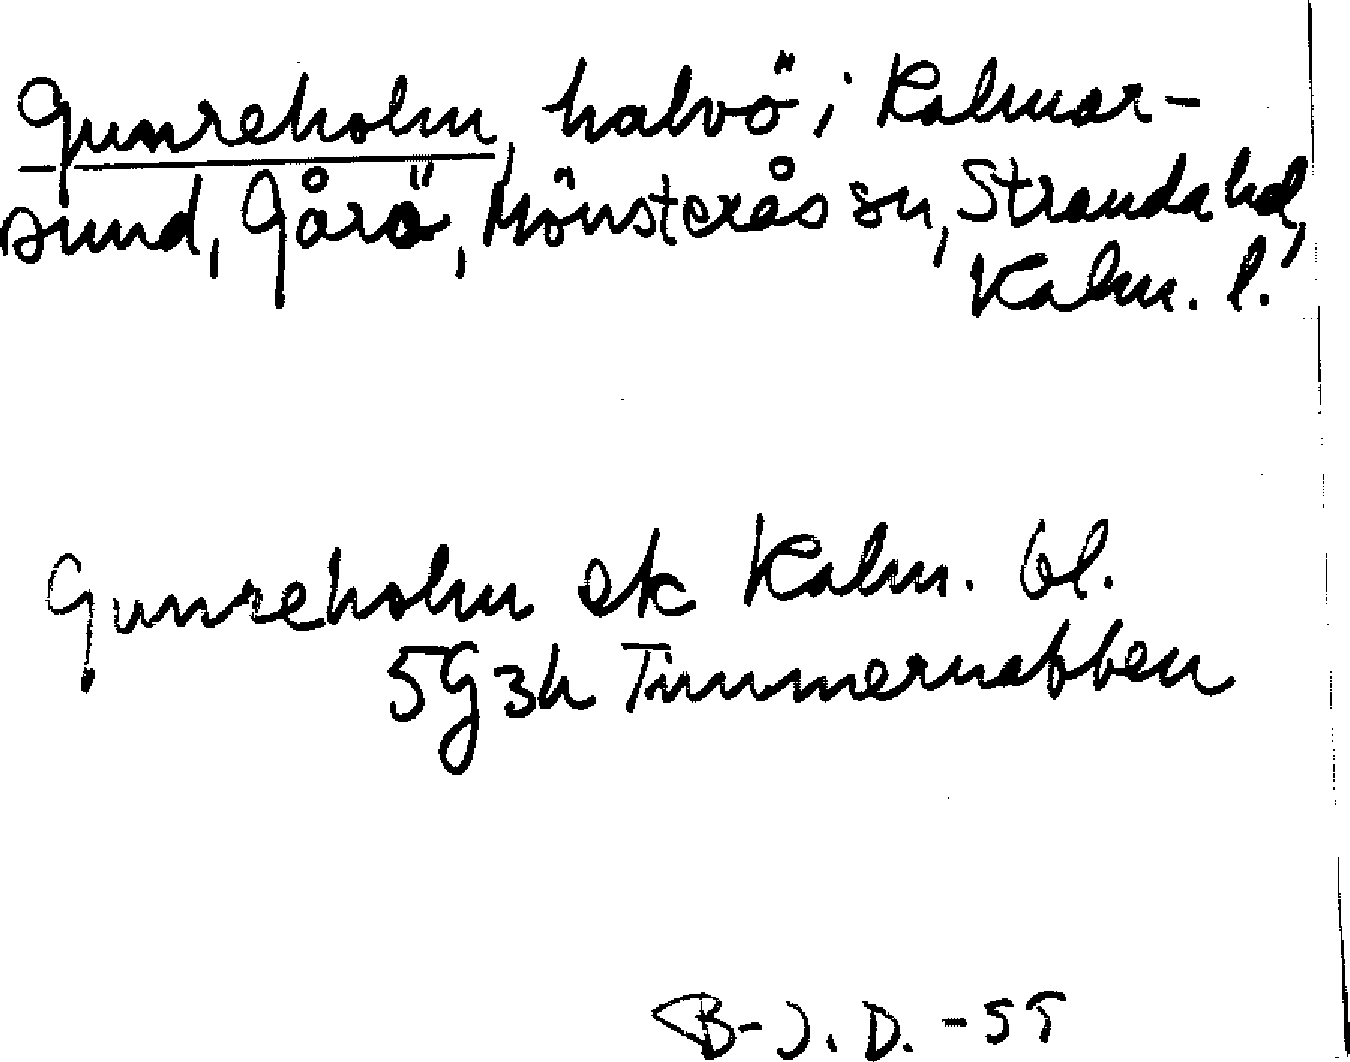 Gunreholm, halvö i Kalmar-
sund, Gårö, Mönsterås sn, Stranda hd,
Kalm. l.
Gunreholm ek Kalm. bl.
5G3h Timmernabben
B-J. D. -55